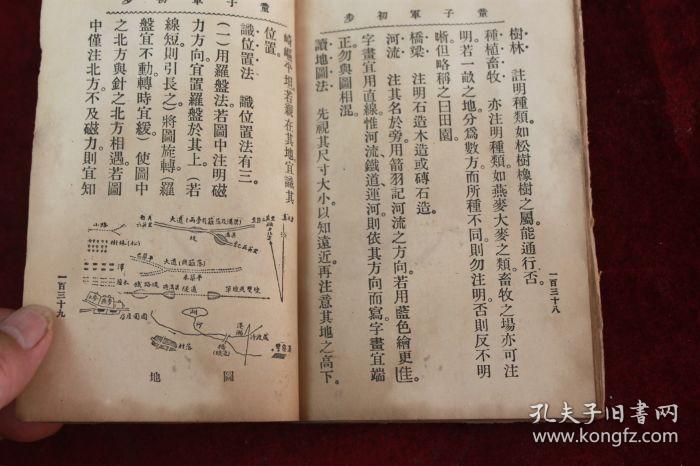 童子軍初步
樹林　註明種類如松樹橡樹之屬能通行否。
種植畜牧　亦注明種類。如燕麥大麥之類。畜牧之場亦可注
明。若一畝之地分爲數方。而所種不同。則勿注明。否則反不明
晰。但略稱之曰田園。
橋梁　注明石造木造或磚石造。
河流　注其名於旁。用箭羽記河流之方向。若用藍色繪更佳。
字畫宜用直線。惟河流鐵道運河。則依其方向而寫。字畫宜端
正。勿與圖相混。
讀地圖法　先視其尺寸大小。以知遠近。再注意其地之高下。
一百三十八
童子軍初步
崎嶇平坦。若親在其地。宜識其
位置。
識位置法　識位置法有三。
（一）用羅盤法。若圖中注明磁
力方向。宜置羅盤於其上。（若
線短。則引長之）將圖旋轉。（羅
盤宜不動。轉時宜緩）使圖中
之北方與針之北方相遇。若圖
中僅注北方。不及磁力。則宜知
小路
樹林(松)
大道
鐵路
隧道
村落
地圖
一百三十九
孔夫子旧书网
www.kongfz.com